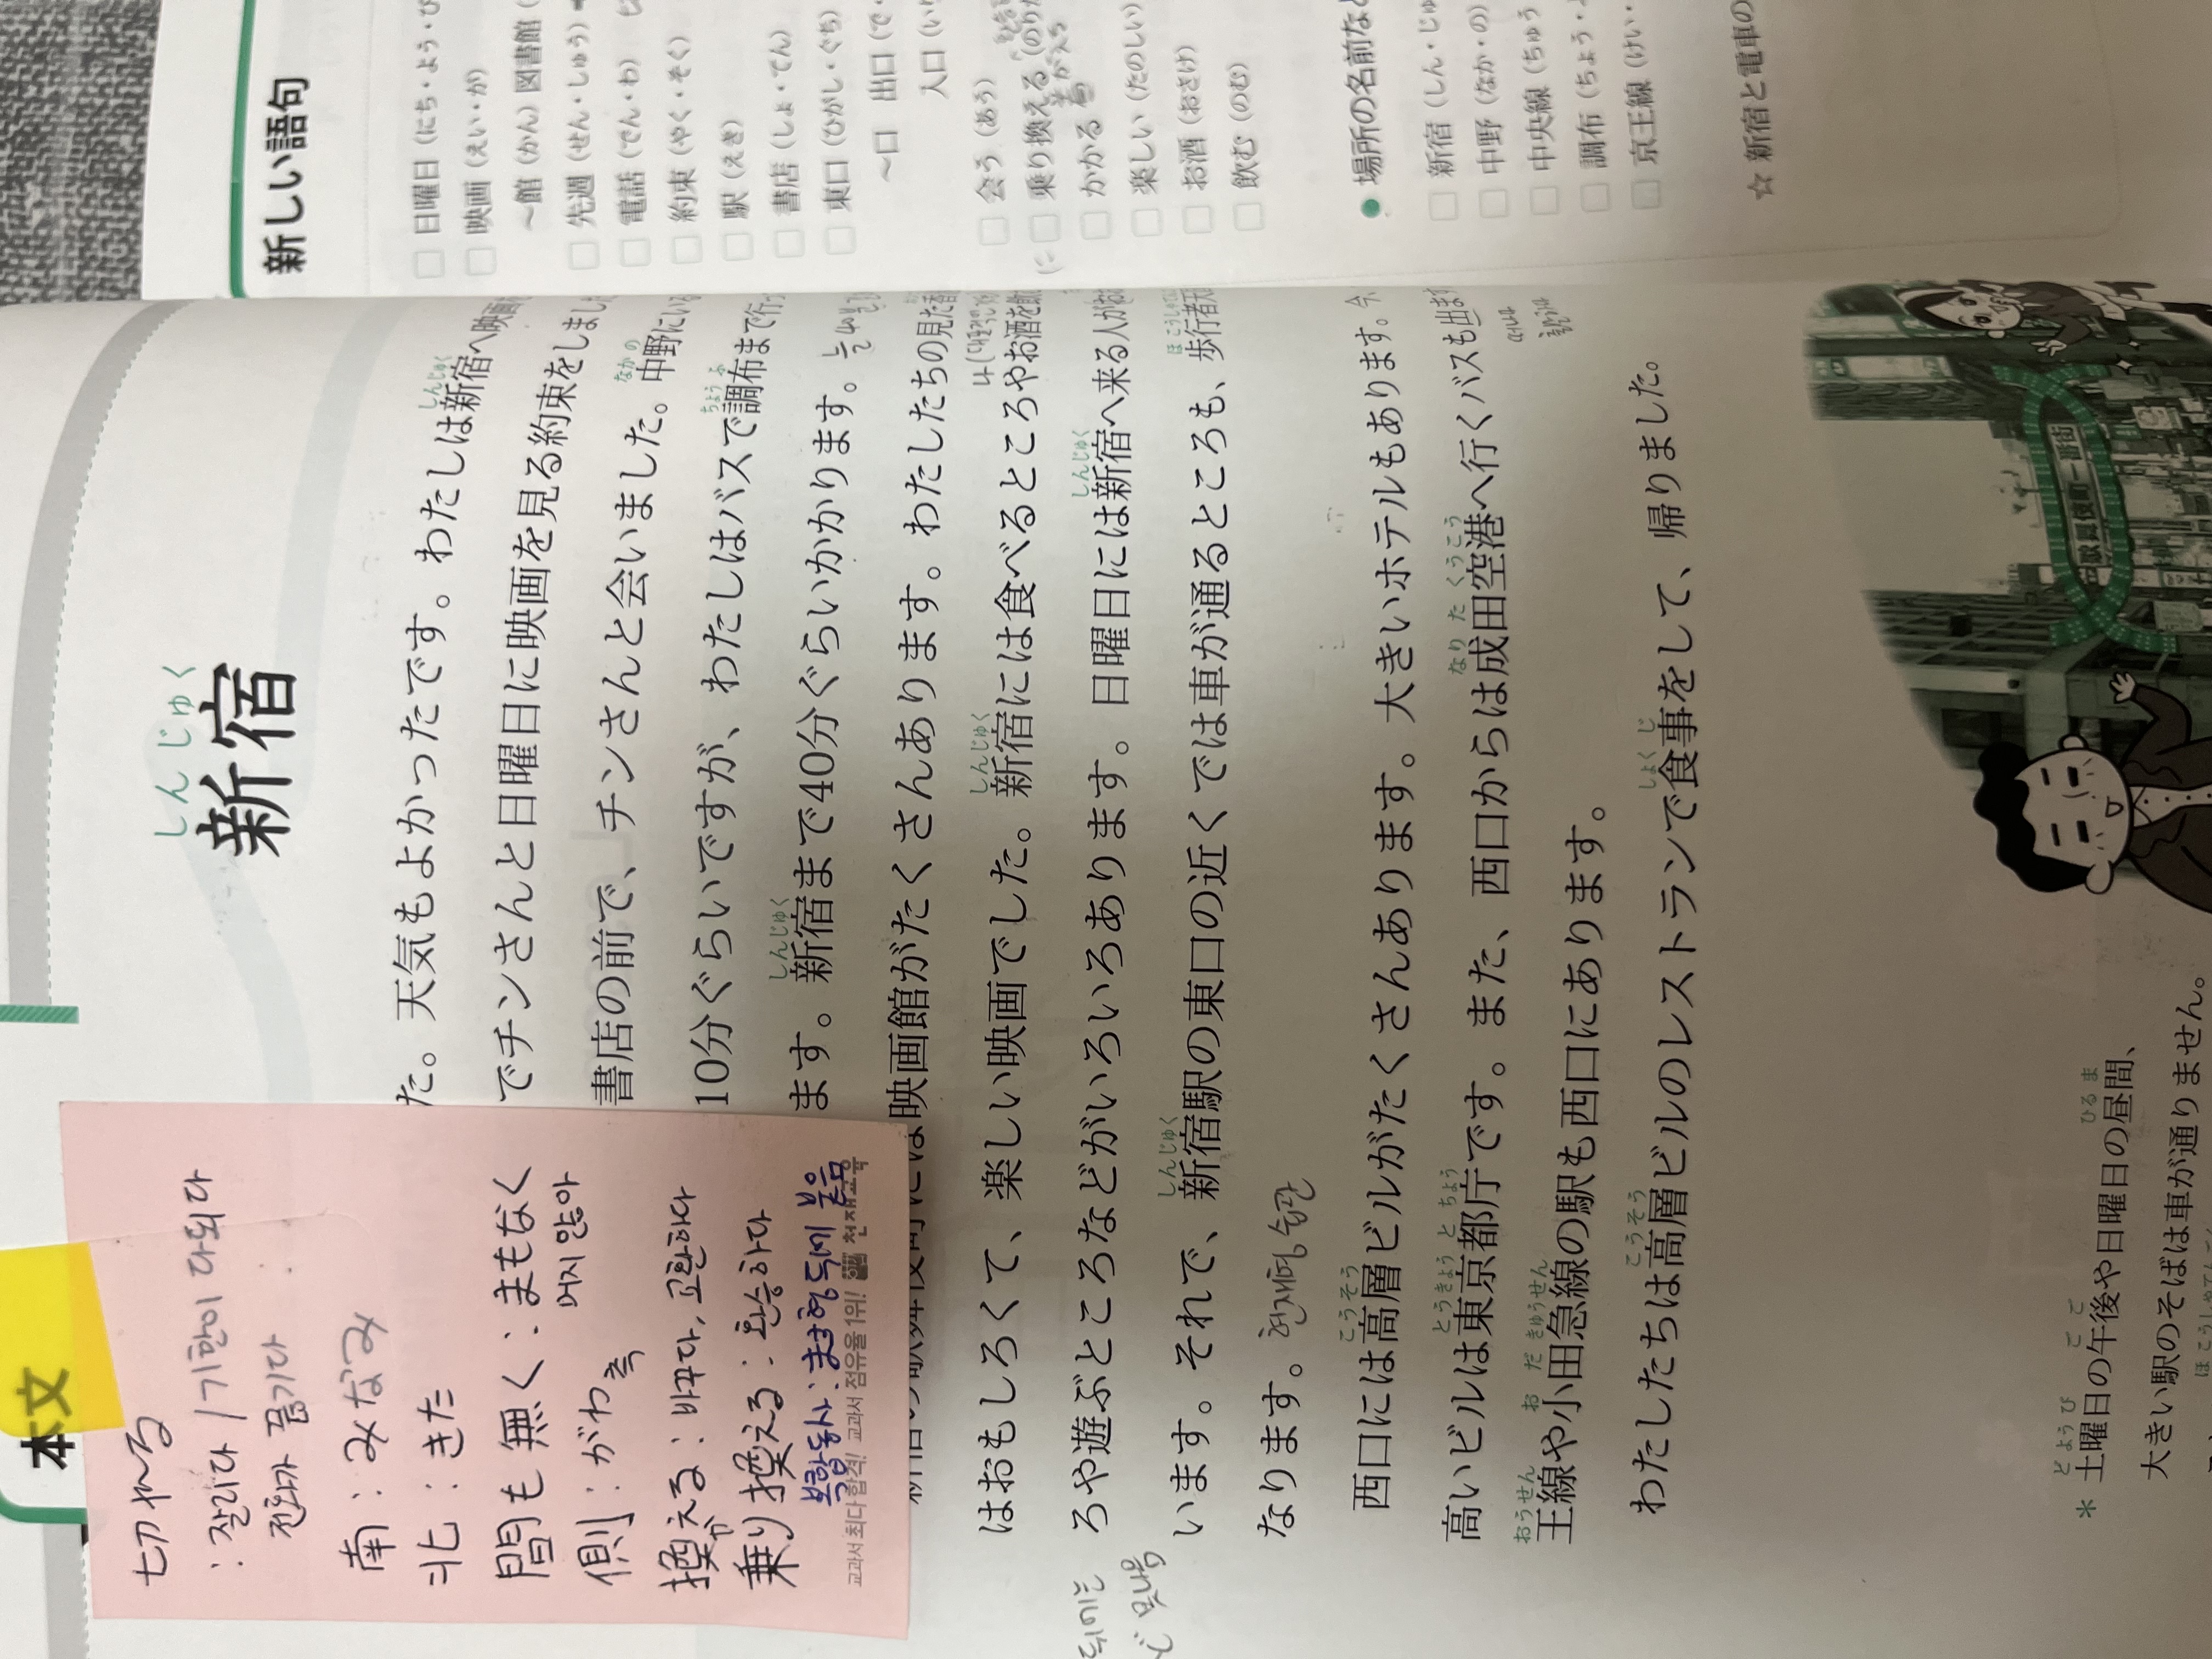 本文
新宿
しんじゅく
た。天気もよかったです。わたしは新宿へ映画
でチンさんと日曜日に映画を見る約束をしまし
書店の前で、チンさんと会いました。中野にいる
10分ぐらいですが、わたしはバスで調布まで行っ
ます。新宿まで40分ぐらいかかります。
は映画館がたくさんあります。わたしたちの見た
はおもしろくて、楽しい映画でした。新宿には食べるところやお酒を飲
ろや遊ぶところなどがいろいろあります。日曜日には新宿へ来る人が
います。それで、新宿駅の東口の近くでは車が通るところも、歩行者天
なります。현재형 습관
西口には高層ビルがたくさんあります。大きいホテルもあります。今
高いビルは東京都庁です。また、西口からは成田空港へ行くバスも出ます
王線や小田急線の駅も西口にあります。
わたしたちは高層ビルのレストランで食事をして、帰りました。
* 土曜日の午後や日曜日の昼間、
大きい駅のそばは車が通りません。
切れる
: 잘리다 / 기한이 다되다
전화가 끊기다
南 : みなみ
北 : きた
間も無く : まもなく
머지않아
側 : がわ 측
換える : 바꾸다, 교환하다
乗り換える : 환승하다
복합동사 : ます형 뒤에 붙음
교과서 최다합격! 교과서 점유율 1위! 천재교육
新しい語句
日曜日 (にち・よう・び
映画 (えい・が)
～館 (かん) 図書館 (
先週 (せん・しゅう)
電話 (でん・わ)
約束 (やく・そく)
駅 (えき)
書店 (しょ・てん)
東口 (ひがし・ぐち)
～口 出口 (で・
入口 (い
会う (あう)
乗り換える (のりか
かかる
楽しい (たのしい)
お酒 (おさけ)
飲む (のむ)
● 場所の名前など
新宿 (しん・じゅ
中野 (なか・の)
中央線 (ちゅう
調布 (ちょう・
京王線 (けい・
☆ 新宿と電車の